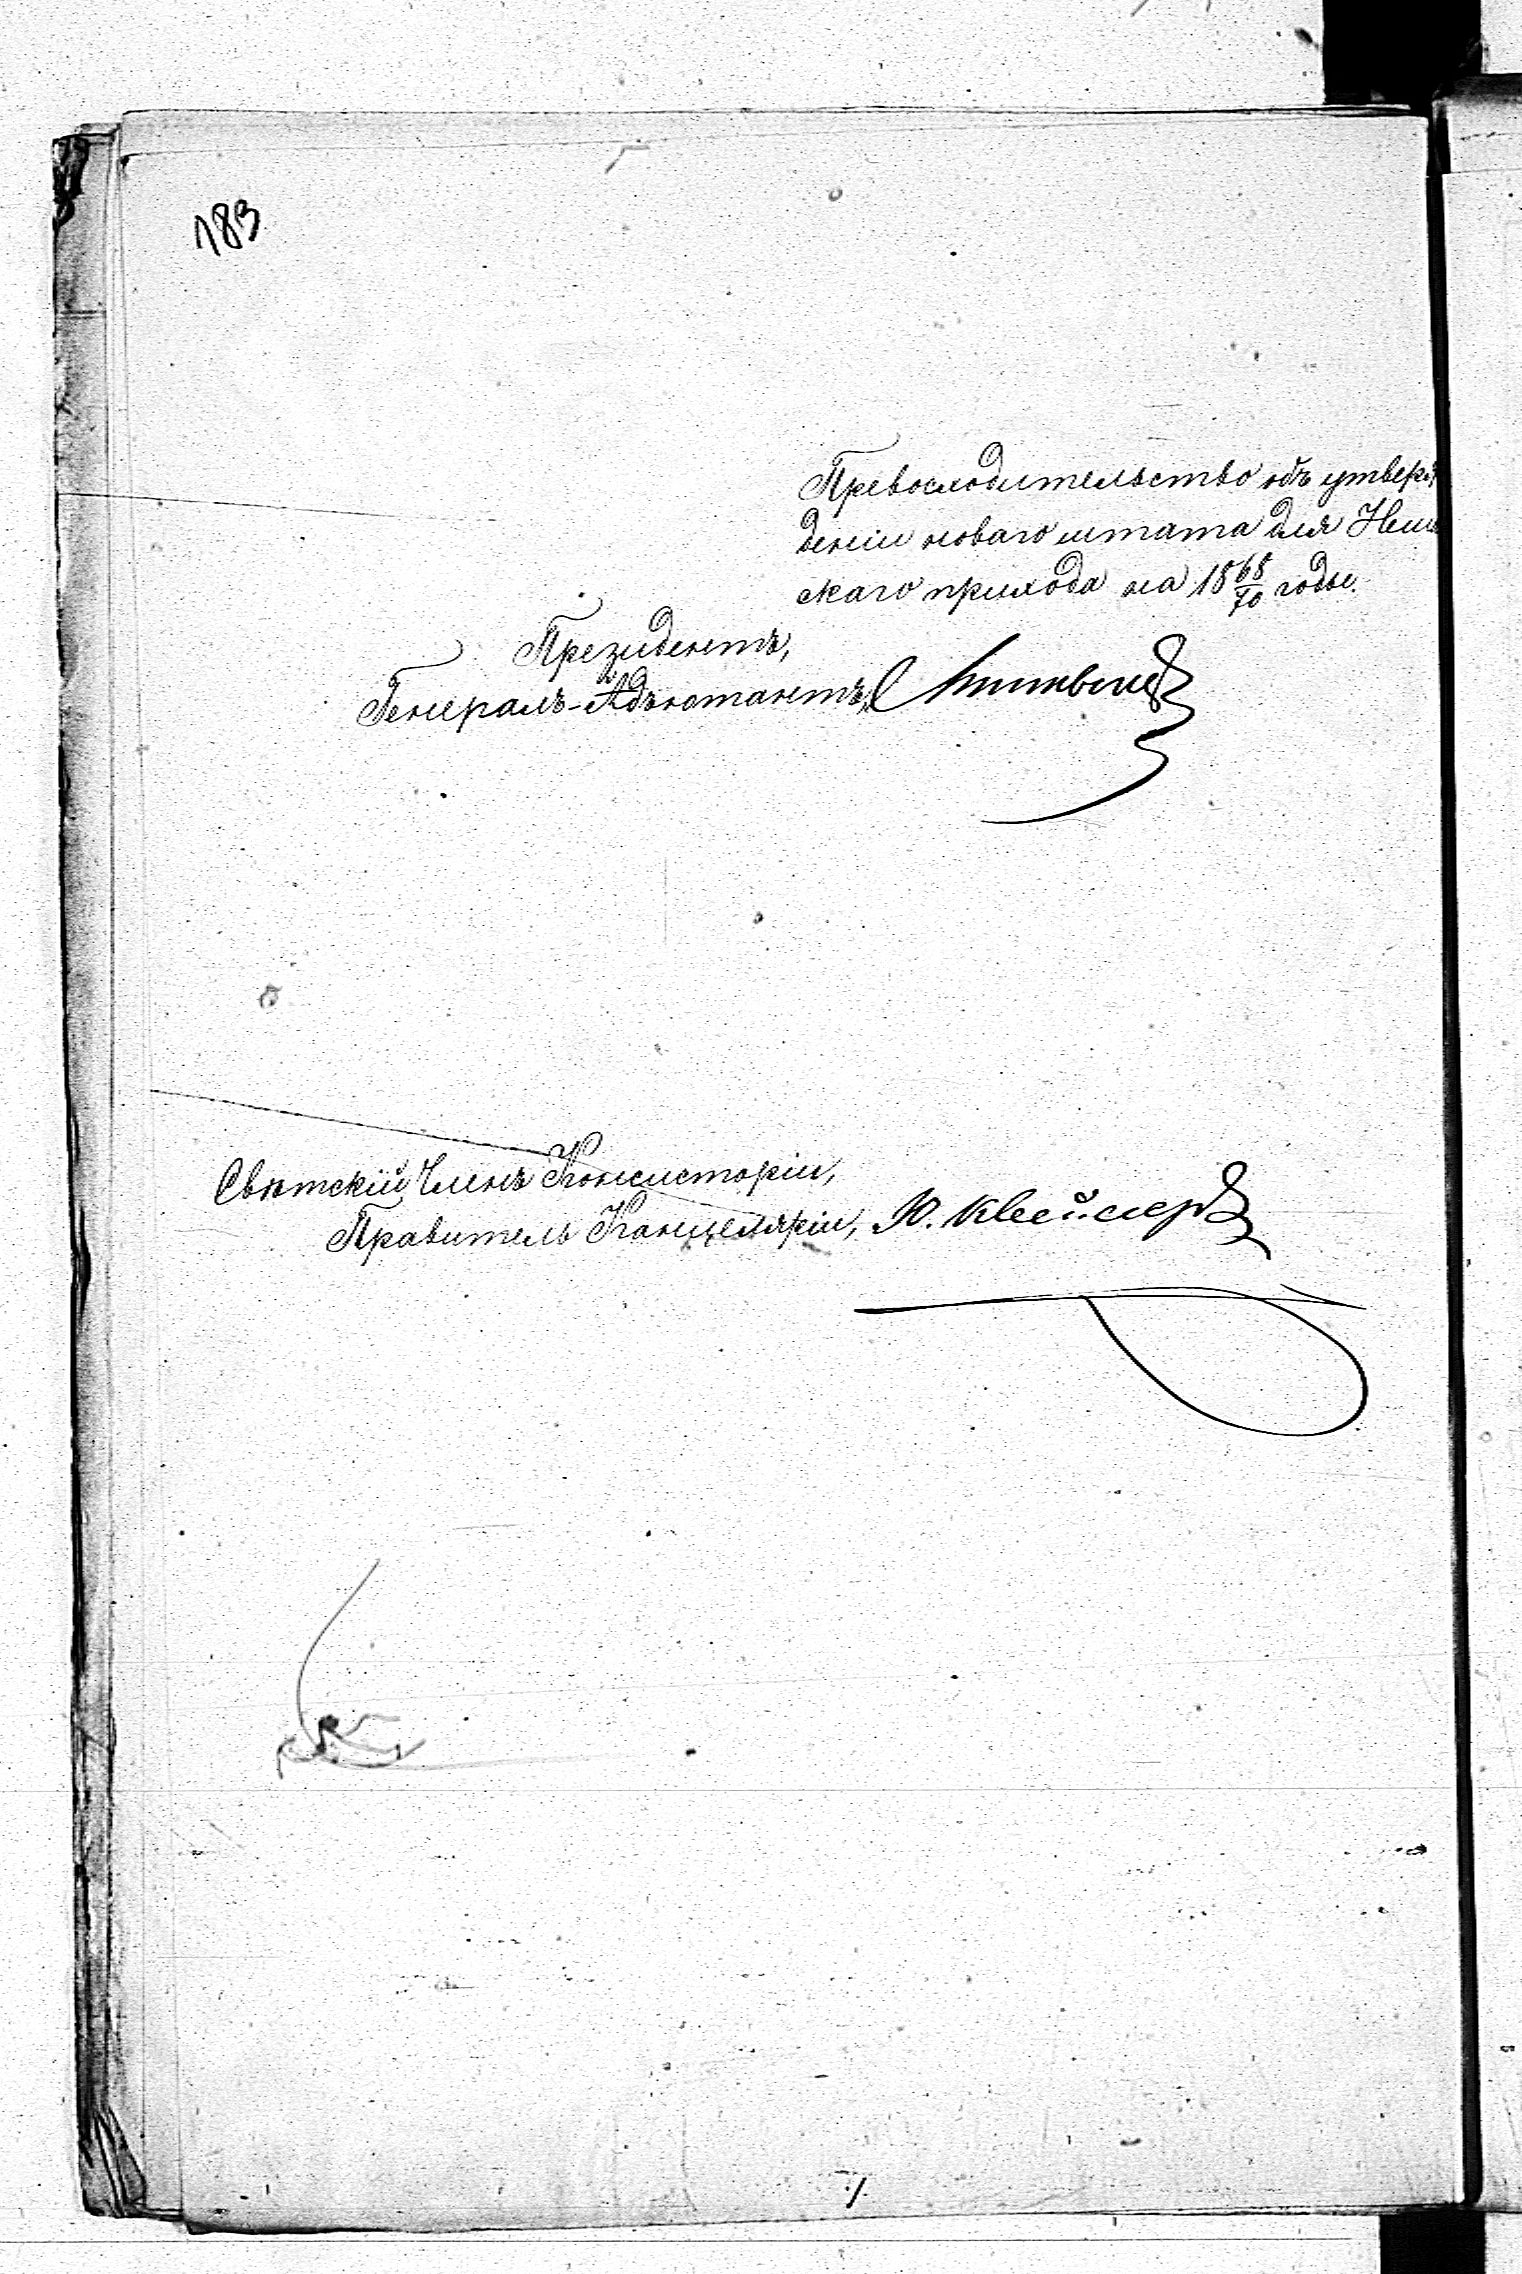 183
Превосходительство объ утверж
деніи новаго штата для Неш
скаго прихода на 18 68/70 годы.
Президентъ,
Генералъ-Адъютантъ,
Свѣтскій Членъ Консисторіи,
Правитель Канцеляріи, Ю.